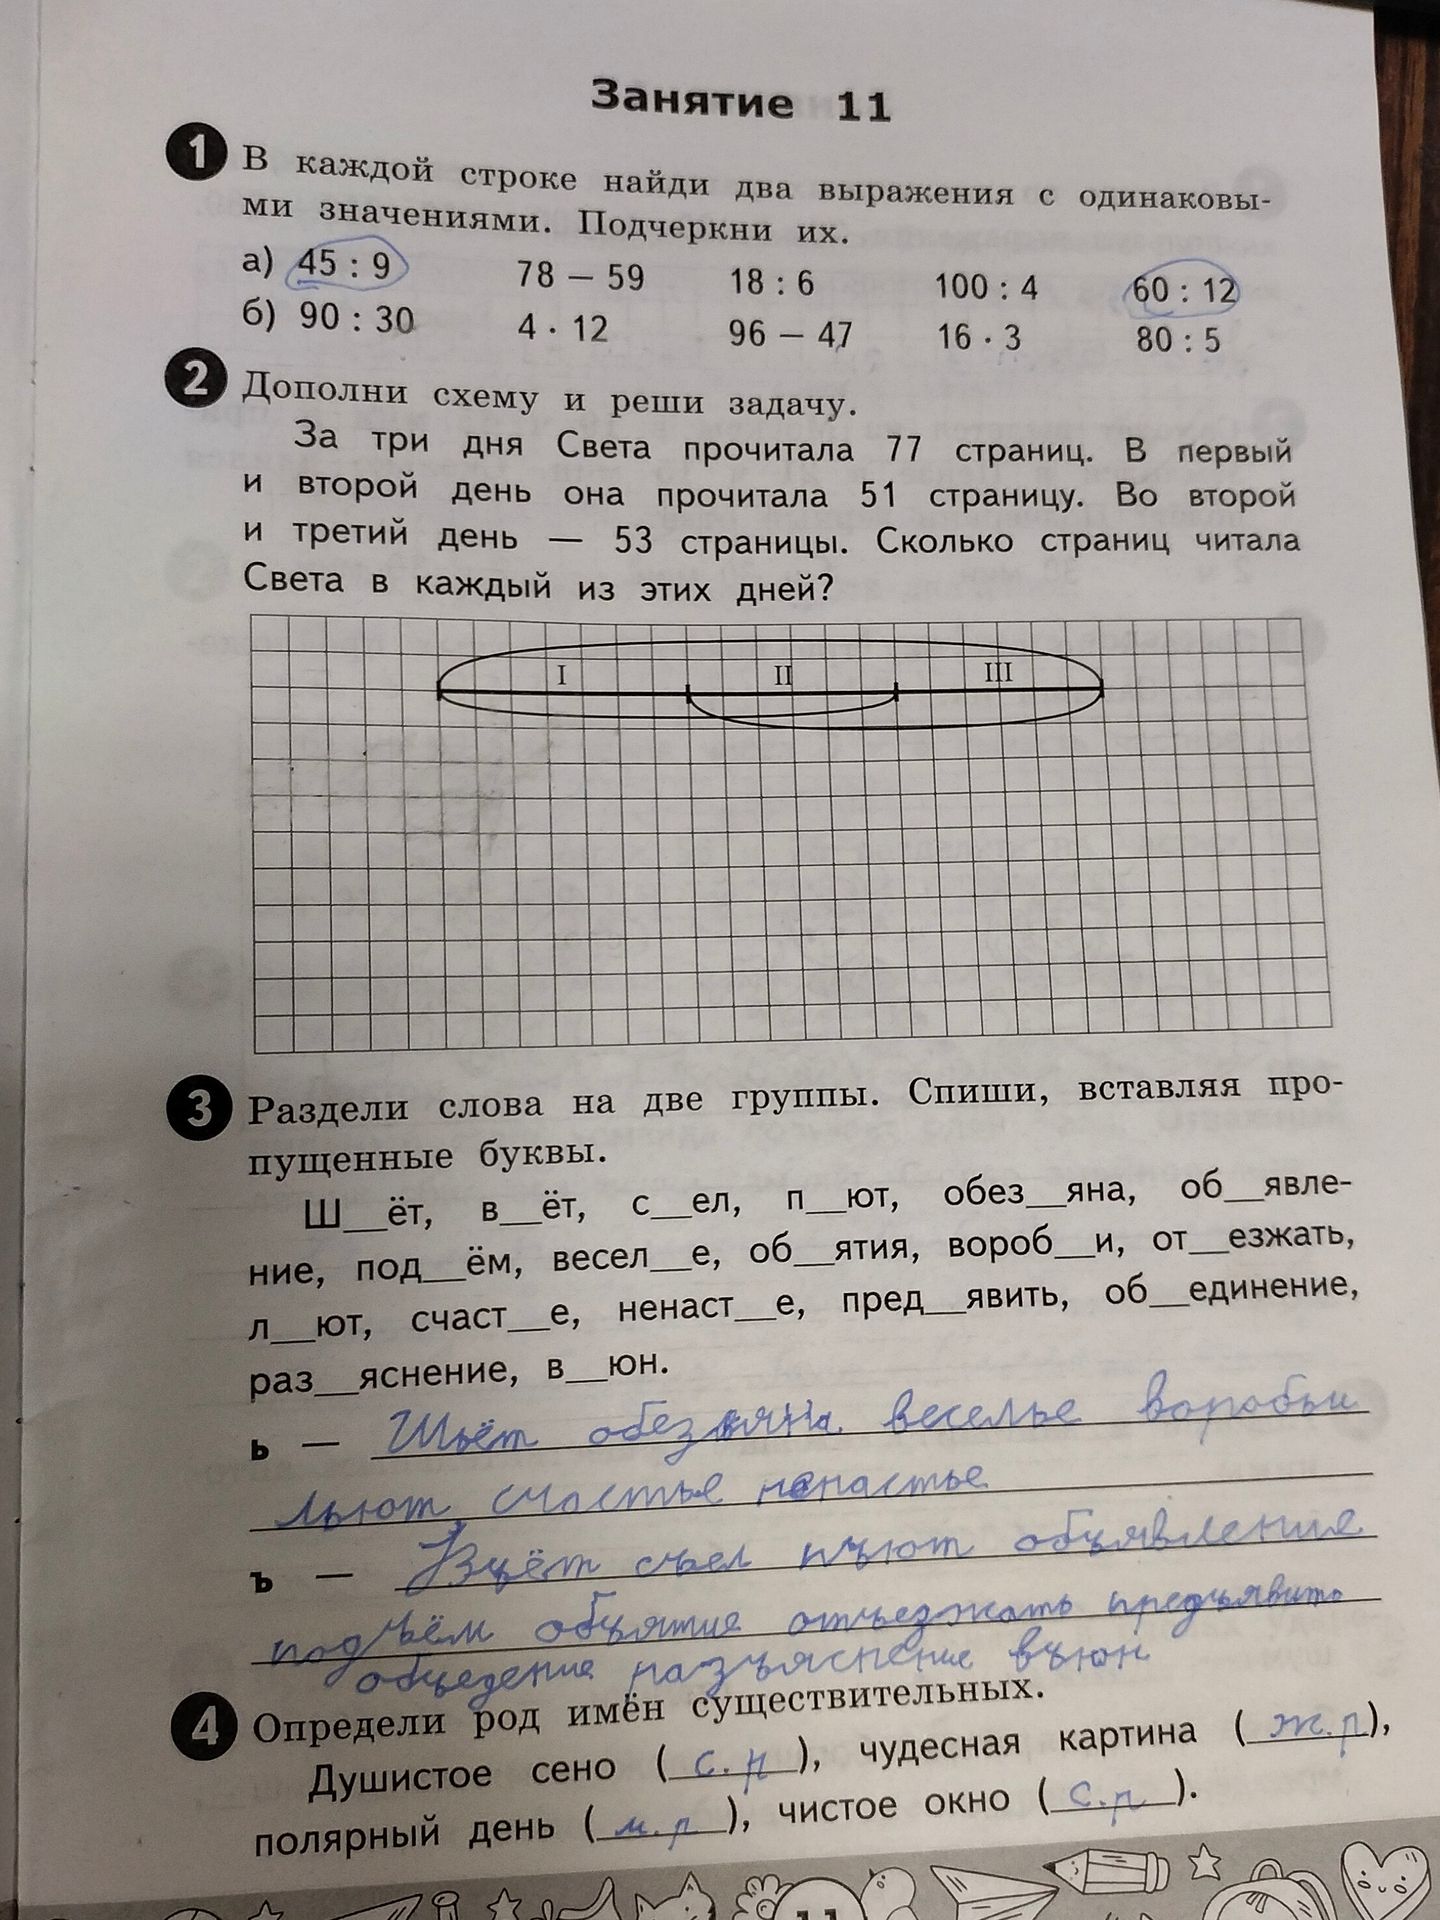 Занятие 11
1 В каждой строке найди два выражения с одинаковы-
ми значениями. Подчеркни их.
а) 45 : 9 78 – 59 18 : 6 100 : 4 60 : 12
б) 90 : 30 4 · 12 96 – 47 16 · 3 80 : 5
2 Дополни схему и реши задачу.
За три дня Света прочитала 77 страниц. В первый
и второй день она прочитала 51 страницу. Во второй
и третий день — 53 страницы. Сколько страниц читала
Света в каждый из этих дней?
I II III
3 Раздели слова на две группы. Спиши, вставляя про-
пущенные буквы.
Ш__ёт, в__ёт, с__ел, п__ют, обез__яна, об__явле-
ние, под__ём, весел__е, об__ятия, вороб__и, от__езжать,
л__ют, счаст__е, ненаст__е, пред__явить, об__единение,
раз__яснение, в__юн.
ь — Шьёт обезьяна веселье воробьи
льют, счастье ненастье
ъ — Въёт съел пъют объявление
подъём объятие отъезжать предъявить
объедение разъяснение въюн
4 Определи род имён существительных.
Душистое сено (с.р), чудесная картина (ж.р),
полярный день (м.р), чистое окно (с.р).
11